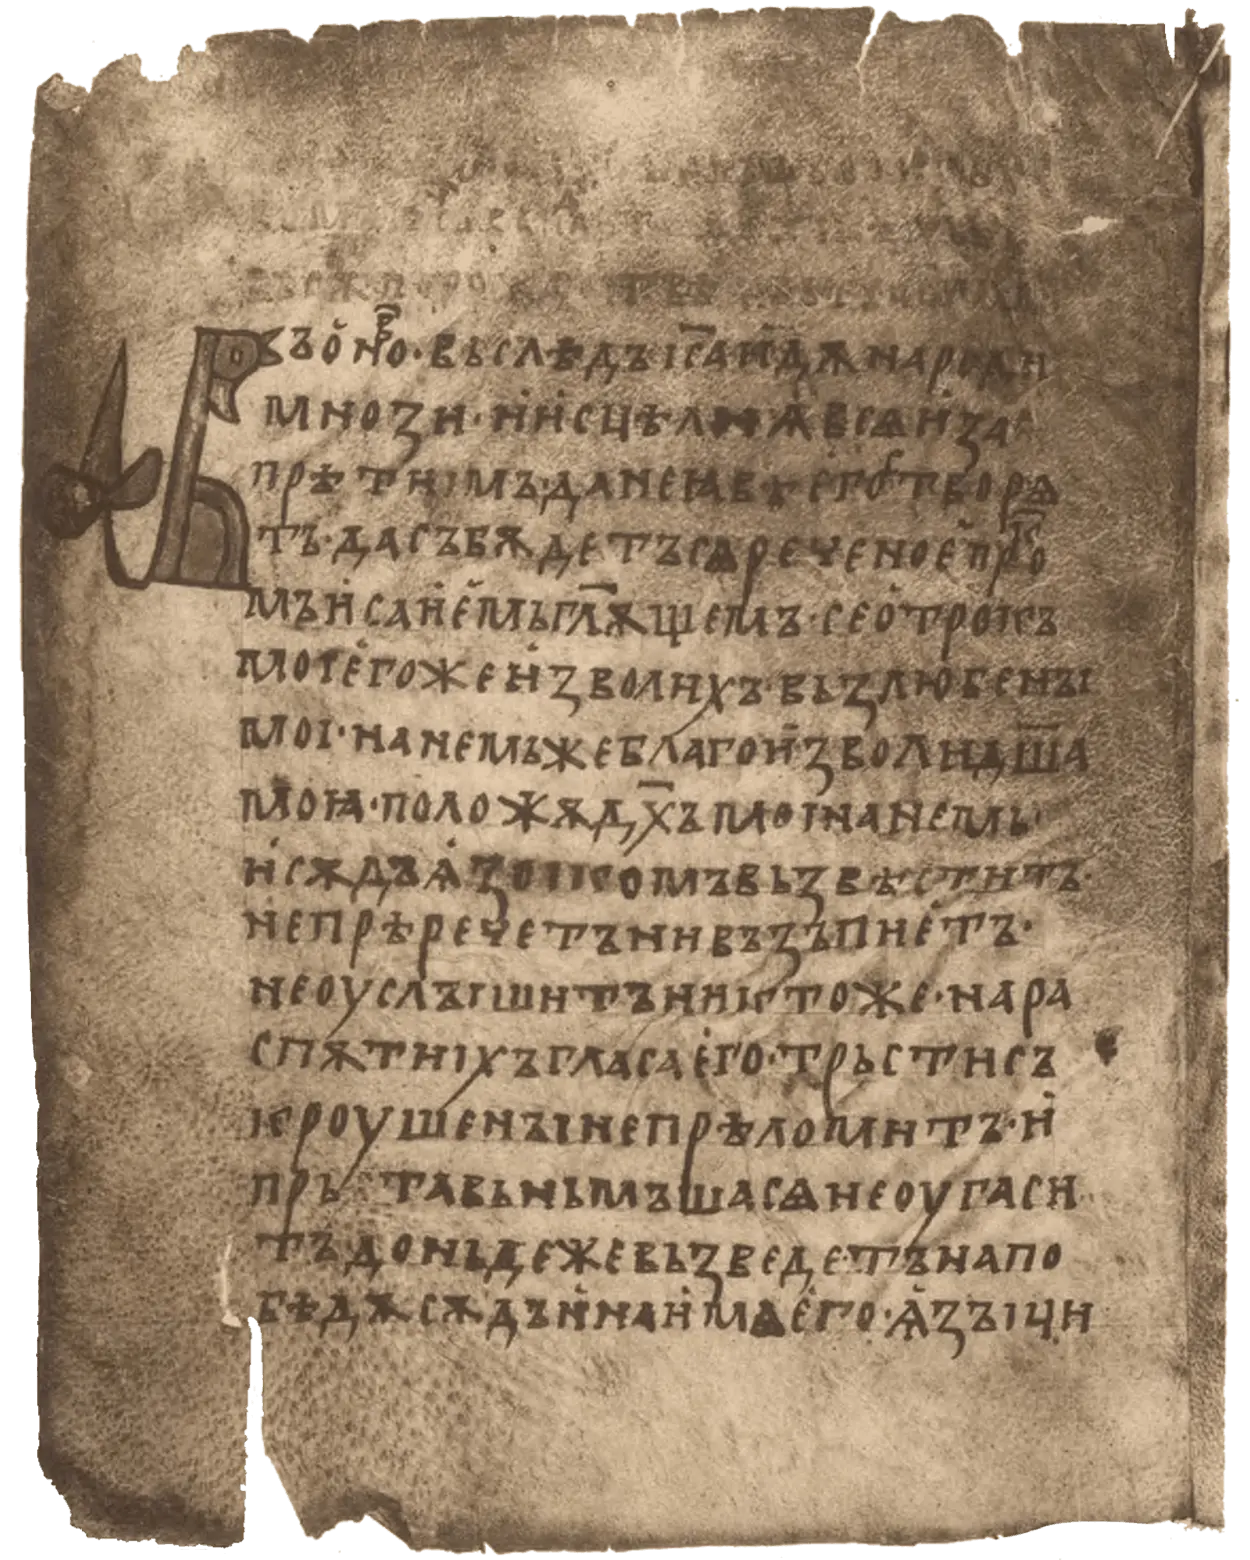 Въ о́но врѣ· вьслѣдъ і҃са и́дѫ народи
мнози· и́ и́сцѣли ѩ вси́ѧ и́ за
прѣти імъ· да не ꙗвѣ е́го́ творѧ
тъ· да събѫдетъ сѧ речено е́ про҃ко
мъ и́саие́мь гл҃ѫщемъ· се о́трокъ
мот е́гоже и́зволихъ· вьзлюбенъі
моі· на немьже благои́зволи дш҃а
моꙗ· положѫ дх҃ъ моі на немь·
и́ сѫдъ ѩ́зъікомъ вьзвѣститъ·
не прѣречетъ ни възъпие́тъ·
не оуслъішитъ никтоже· на ра
спѫтиіхъ гласа е́го· трьсти съ
кроушенъі не прѣломитъ· и́
прьставьньмъша сѧ не оугаси
тъ доньдеже вьзведетъ на по
бѣдѫ сѫдъ и́ на и́мѧ е́го· ѩ́зъіци